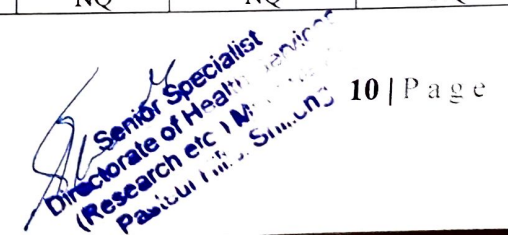 NQ NQ
Senior Specialist
Directorate of Health Services
(Research etc) M
Pasteur Hills, Shillong
10 | P a g e